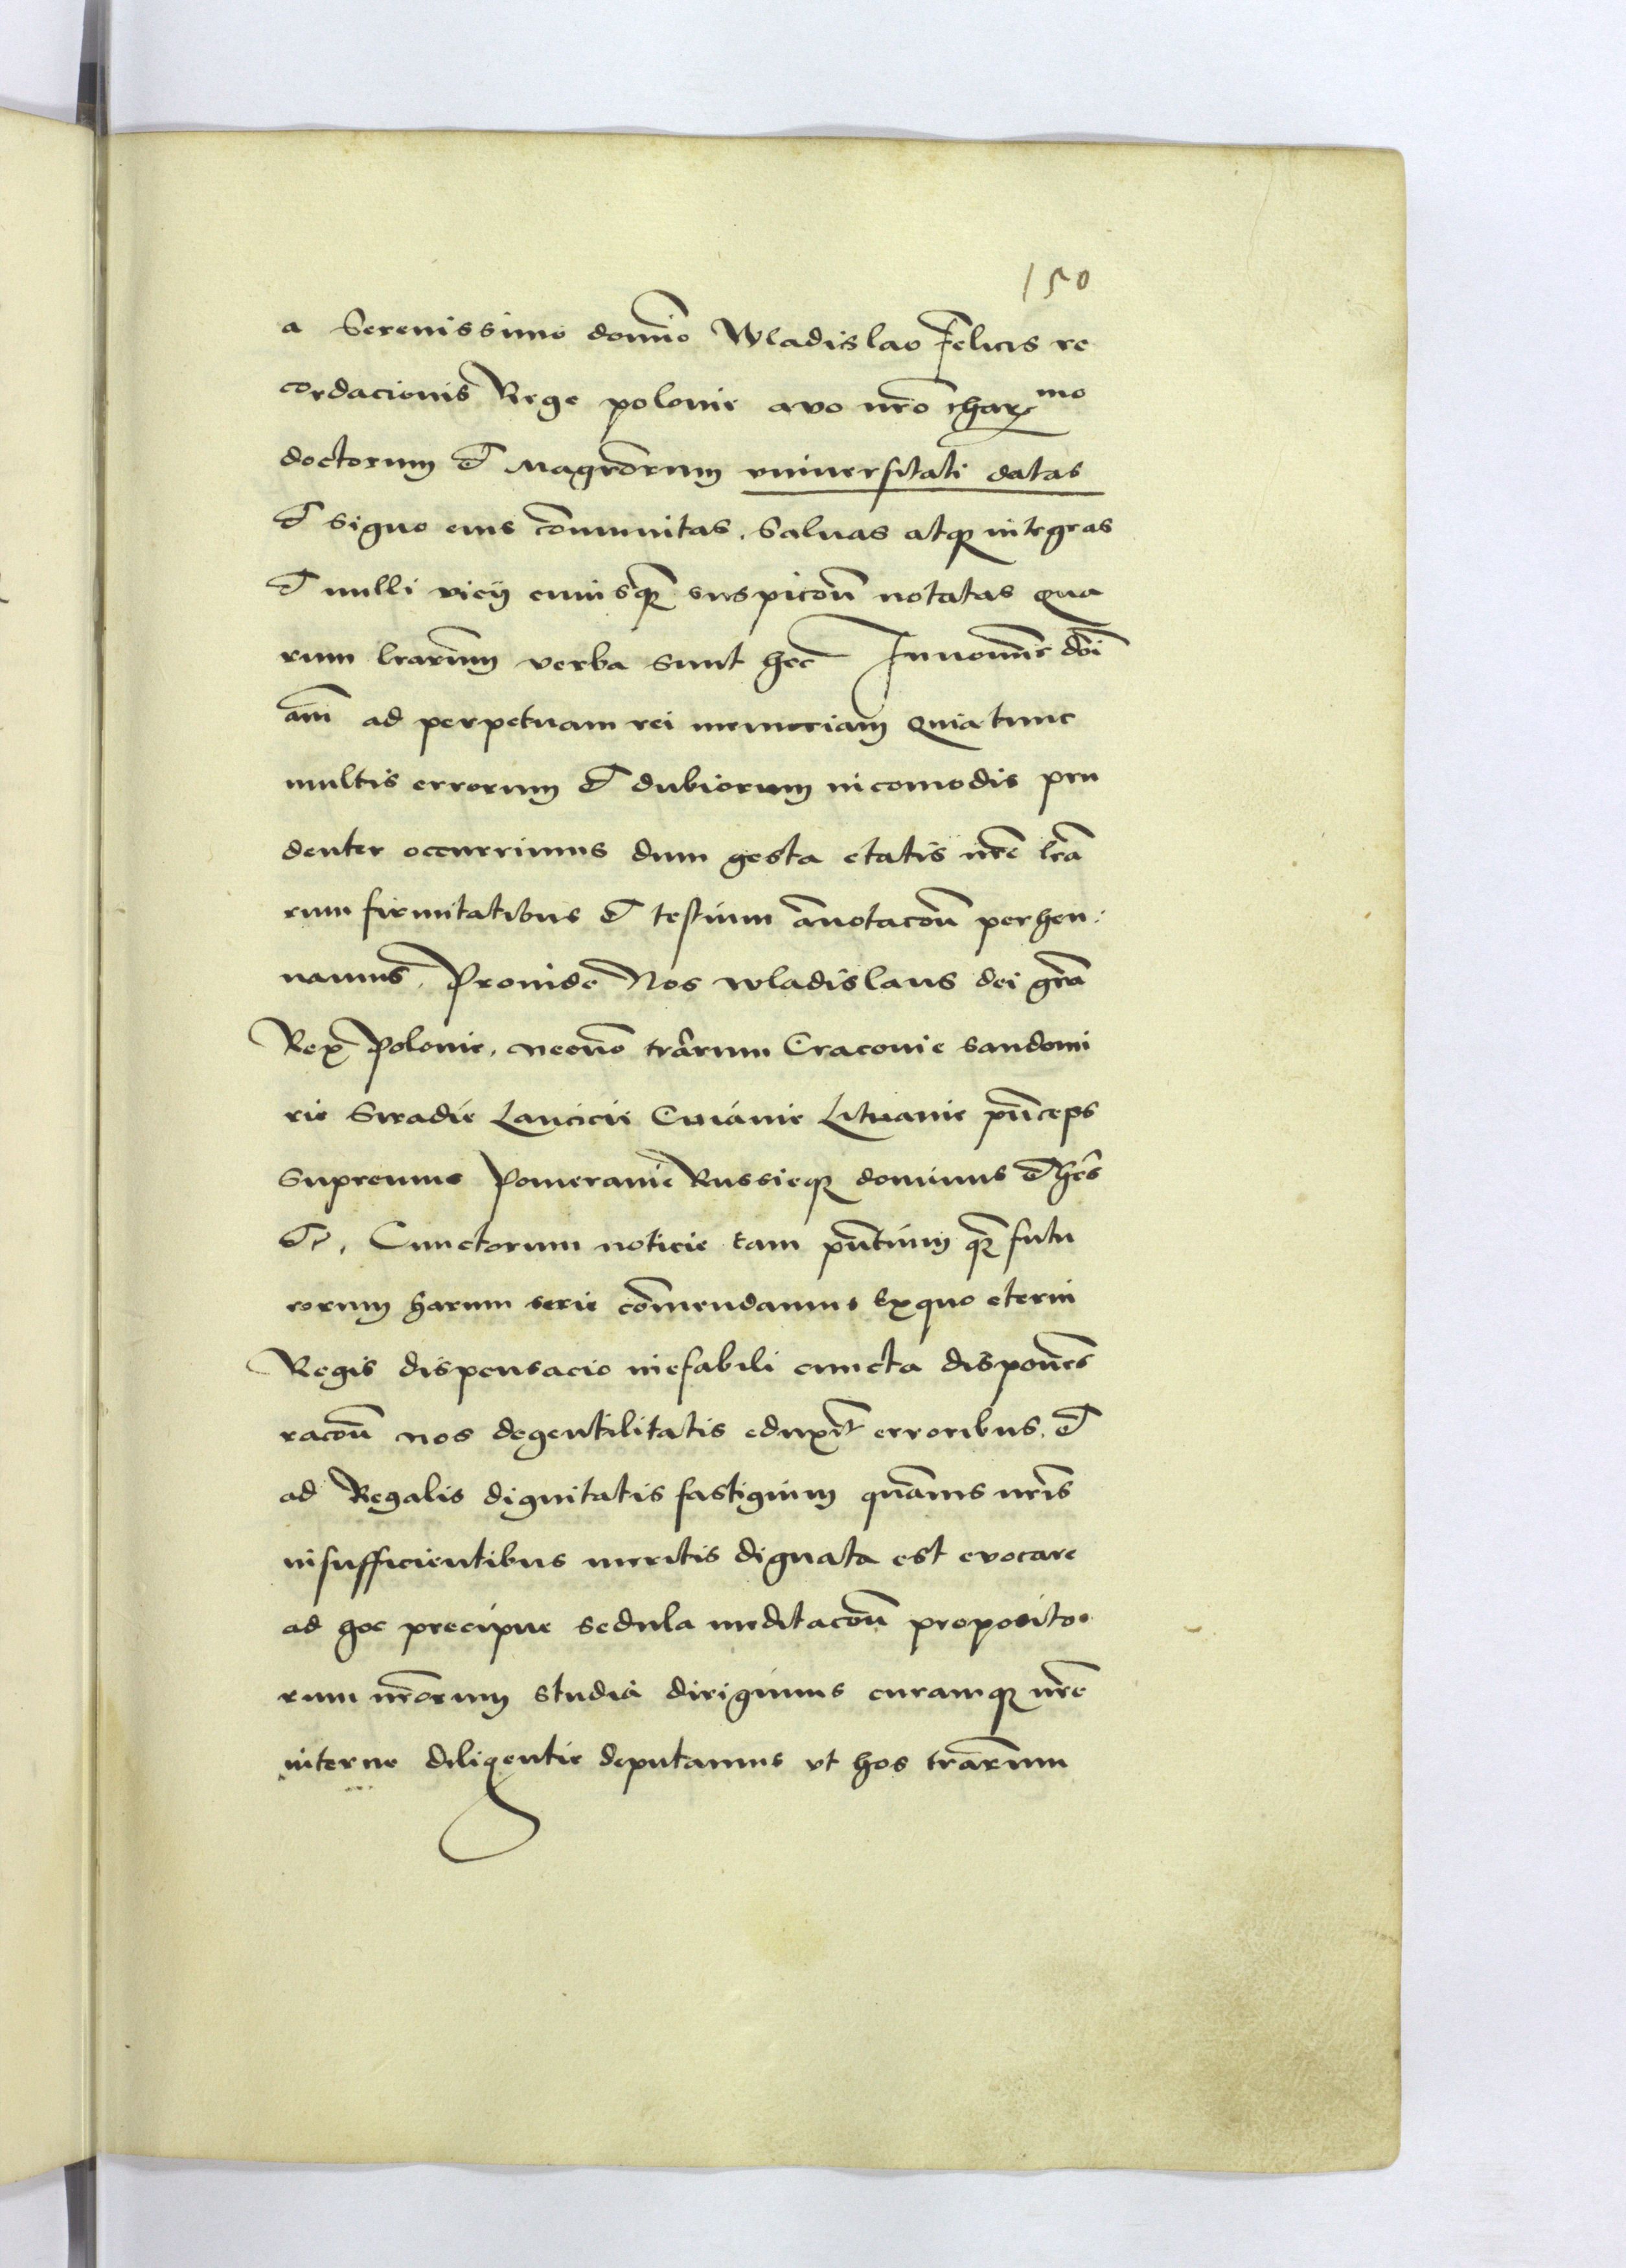 150
a Serenissimo domīo Wladislao Felicis re
cordacionis Rege polonie avo nr̄o charmo
doctorum et Magr̄orum vniuersitati datas
et signo eius cōmunitas. Saluas atq integras
et nulli vicij cuiusq suspicōn notatas Qua
rum lrārum verba sunt hec Innomīe dn̄i
am̄ ad perpetuam rei memoriam Quia tunc
multis errorum et dubiorum incomodis pru
denter occurrimus dum gesta etatis nr̄e lrā
rum firmitatibus et testium ānotacōn perhen:
namus. Proinde Nos wladislaus dei grā
Rex Polonie. necnō trārum Cracouie sandomi
rie Siradie Lancicie Cuiauie Lituanie pn̄ceps
Supremus Pomeranie Russieq dominus et hēs
etc. Cunctorum noticie tam pn̄tium qm̄ futu
rorum harum serie cōmendamus Exquo eterni
Regis dispensacio inefabili cuncta disponēs
racōn nos degentilitatis eduxit erroribus. et
ad Regalis dignitatis fastigium quāuis nr̄is
insufficientibus meritis dignata est evocare
ad hoc precipue sedula meditacōn proposito
rum nr̄orum studia dirigimus curamq nr̄e
interne diligentie deputamus vt hos trārum